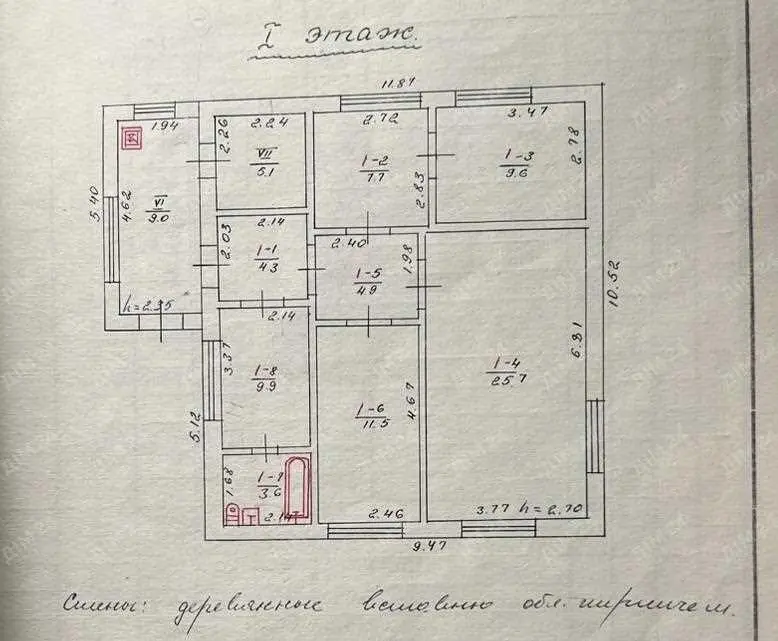 I этаж.
11.87
1.94
2.26
2.24
2.72
3.47
2.78
VII
5.1
1-2
7.7
1-3
9.6
5.40
4.62
VI
9.0
2.83
2.03
2.14
1-1
4.3
2.40
1.98
1-5
4.9
10.52
h=2.35
2.14
3.37
1-8
9.9
6.81
1-4
25.7
4.67
1-6
11.5
5.12
1.68
1-7
3.6
2.14
2.46
3.77 h=2.70
9.47
Стены: деревянные вставвню обл. кирпичем.